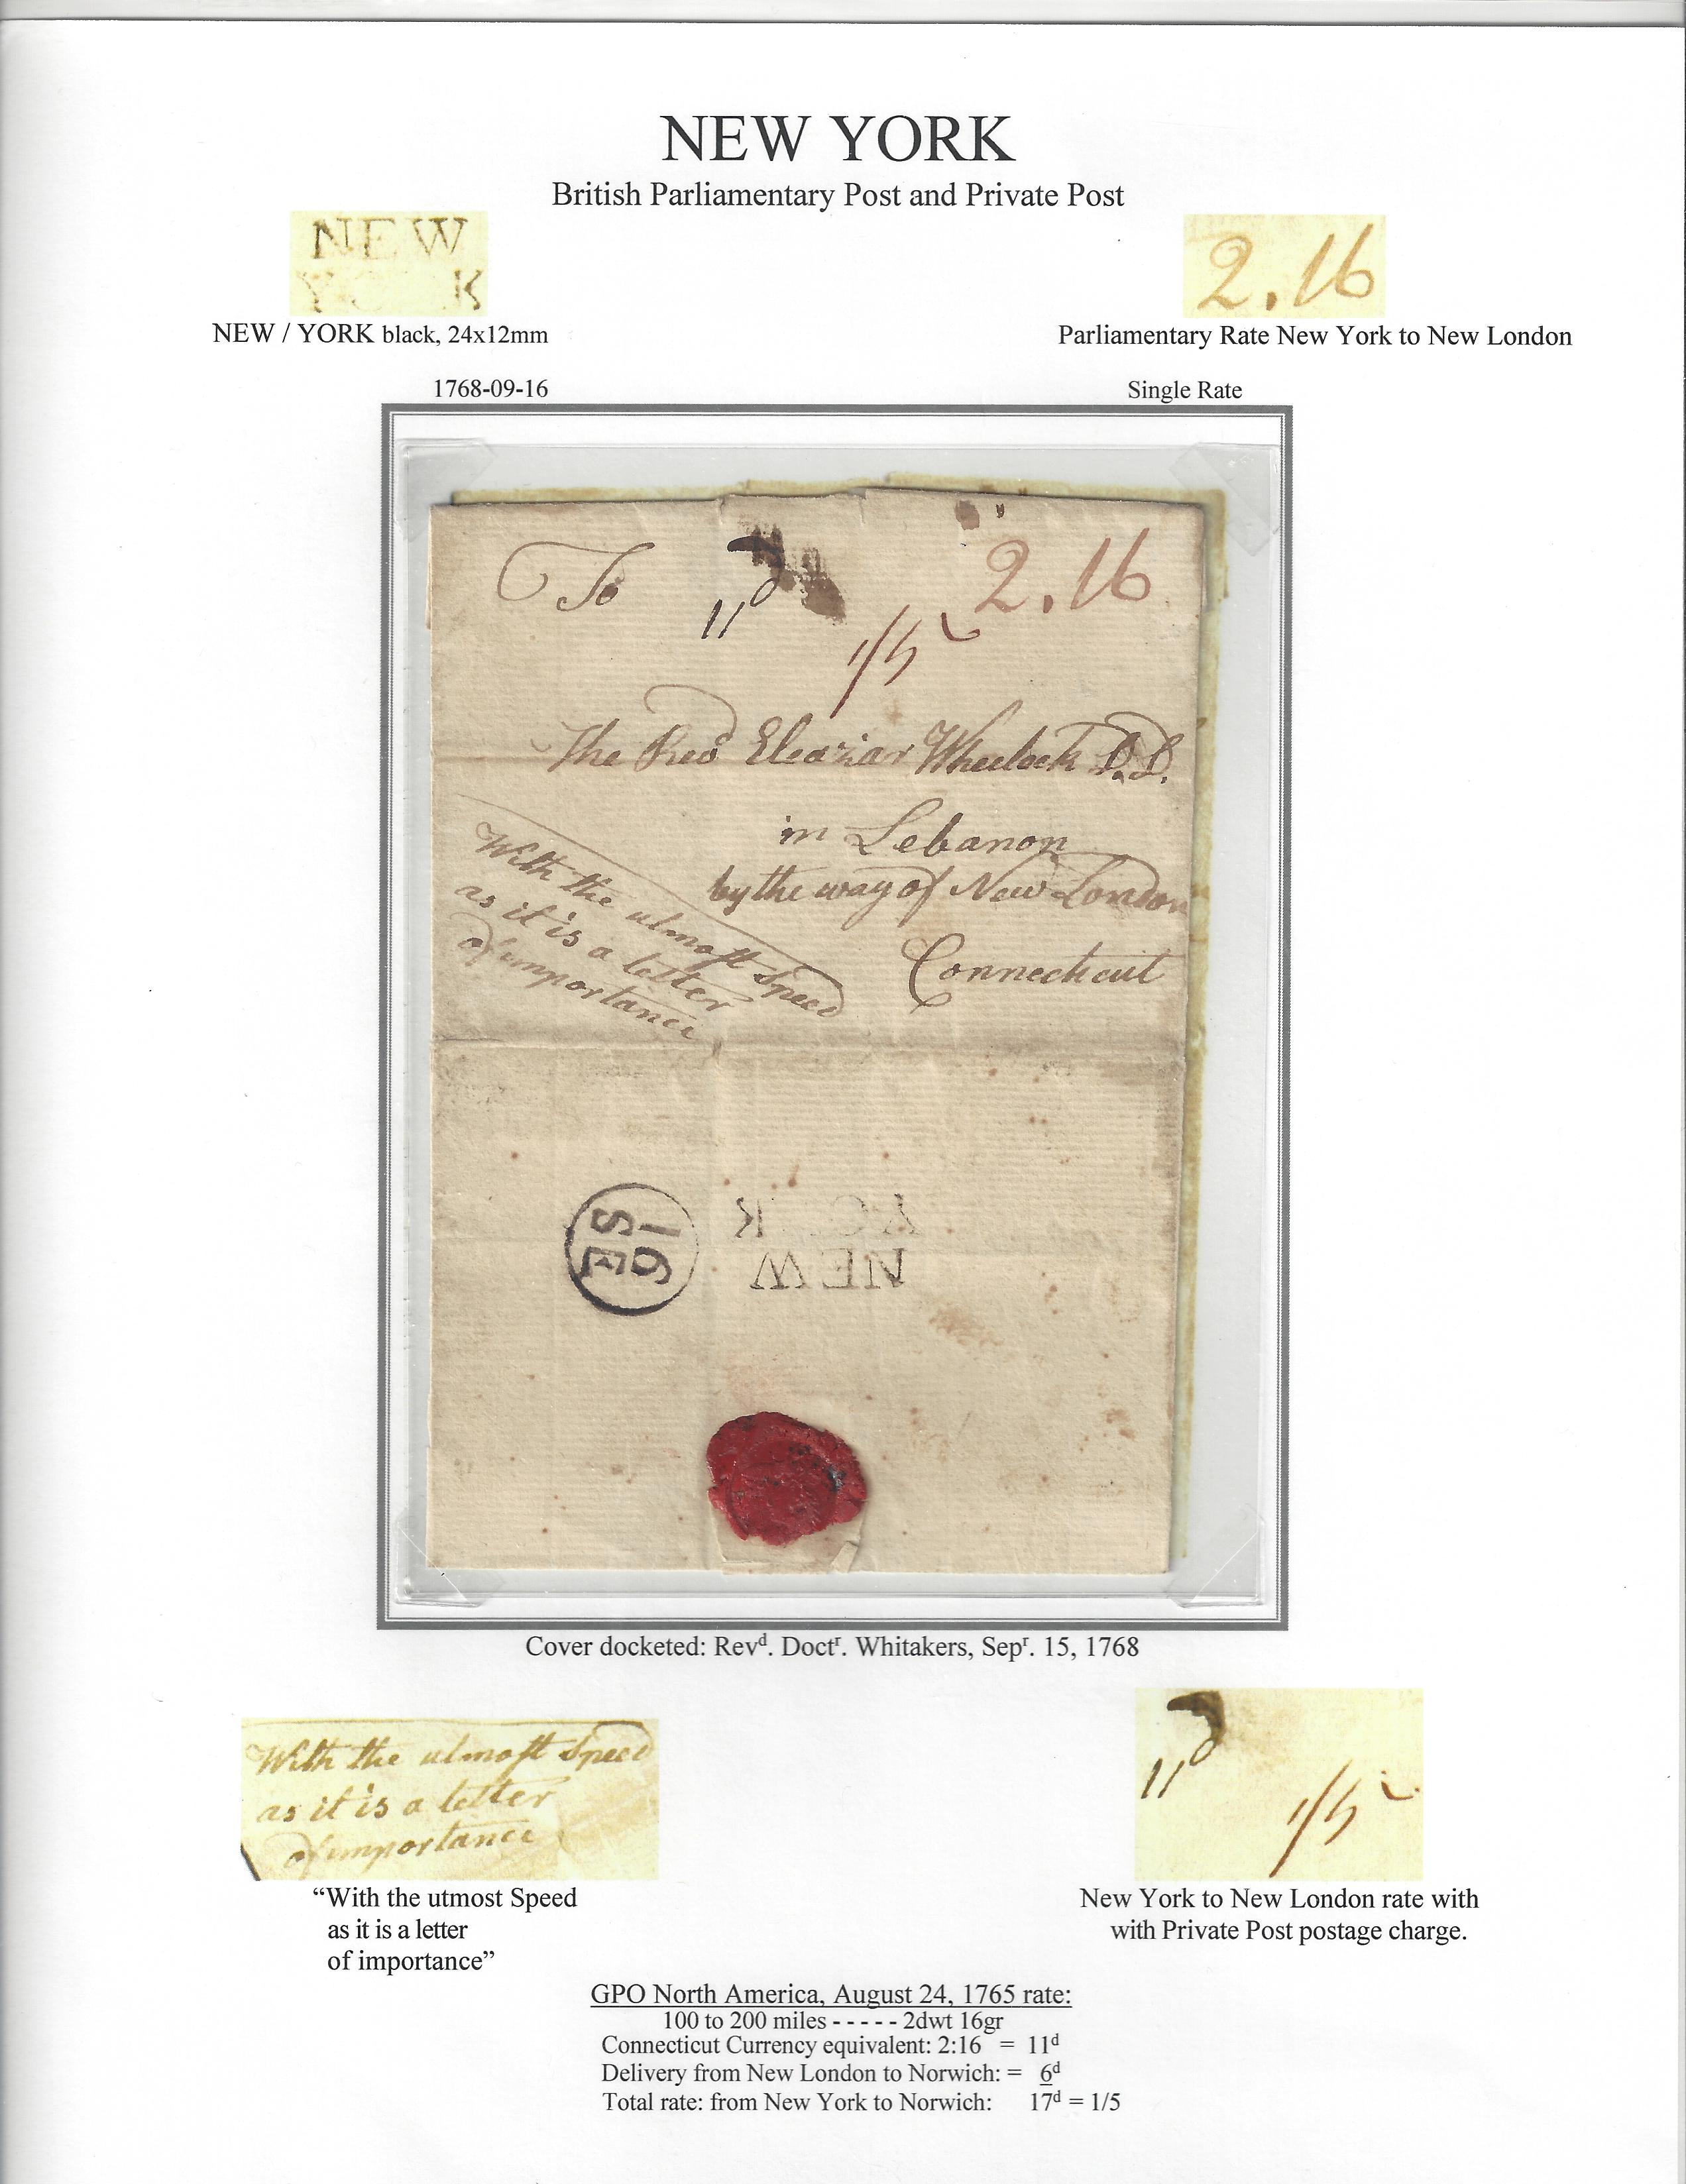 NEW YORK
British Parliamentary Post and Private Post
NEW
Y K
2.16
NEW / YORK black, 24x12mm
Parliamentary Rate New York to New London
1768-09-16
Single Rate
To
11d
2.16
1/5
The Revd Eleaziar Wheelock D.D.
in Lebanon
by the way of New London
Connecticut
With the utmost Speed
as it is a letter
of importance
16
SE
NEW
YO K
Cover docketed: Revd. Doctr. Whitakers, Sepr. 15, 1768
With the utmost Speed
as it is a letter
of importance
11d
1/5
“With the utmost Speed
as it is a letter
of importance”
New York to New London rate with
with Private Post postage charge.
GPO North America, August 24, 1765 rate:
100 to 200 miles - - - - - 2dwt 16gr
Connecticut Currency equivalent: 2:16 = 11d
Delivery from New London to Norwich: = 6d
Total rate: from New York to Norwich: 17d = 1/5